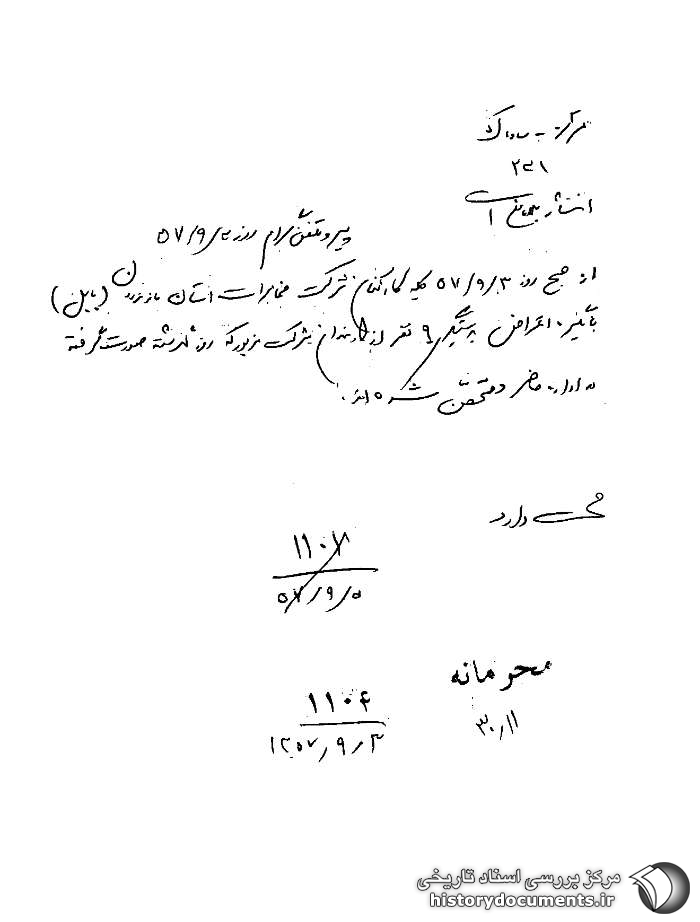 مرکز به ساواک
۲۳۱
انتشار
پیرو تلفنگرام روز ۵۷/۹/
از صبح روز ۵۷/۹/۳ کلیه کارکنان شرکت مخابرات استان مازندران (بابل)
اعتراض دستگیری ۹ نفر از کارمندان شرکت مزبور که روز گذشته صورت گرفته
در اداره حاضر و متحصن شده‌اند.
صحت دارد
۱۱۰۷
۵۷/۹/۵
محرمانه
۳۰/۱۱
۱۱۰۶
۱۳۵۷/۹/۳
مرکز بررسی اسناد تاریخی
historydocuments.ir